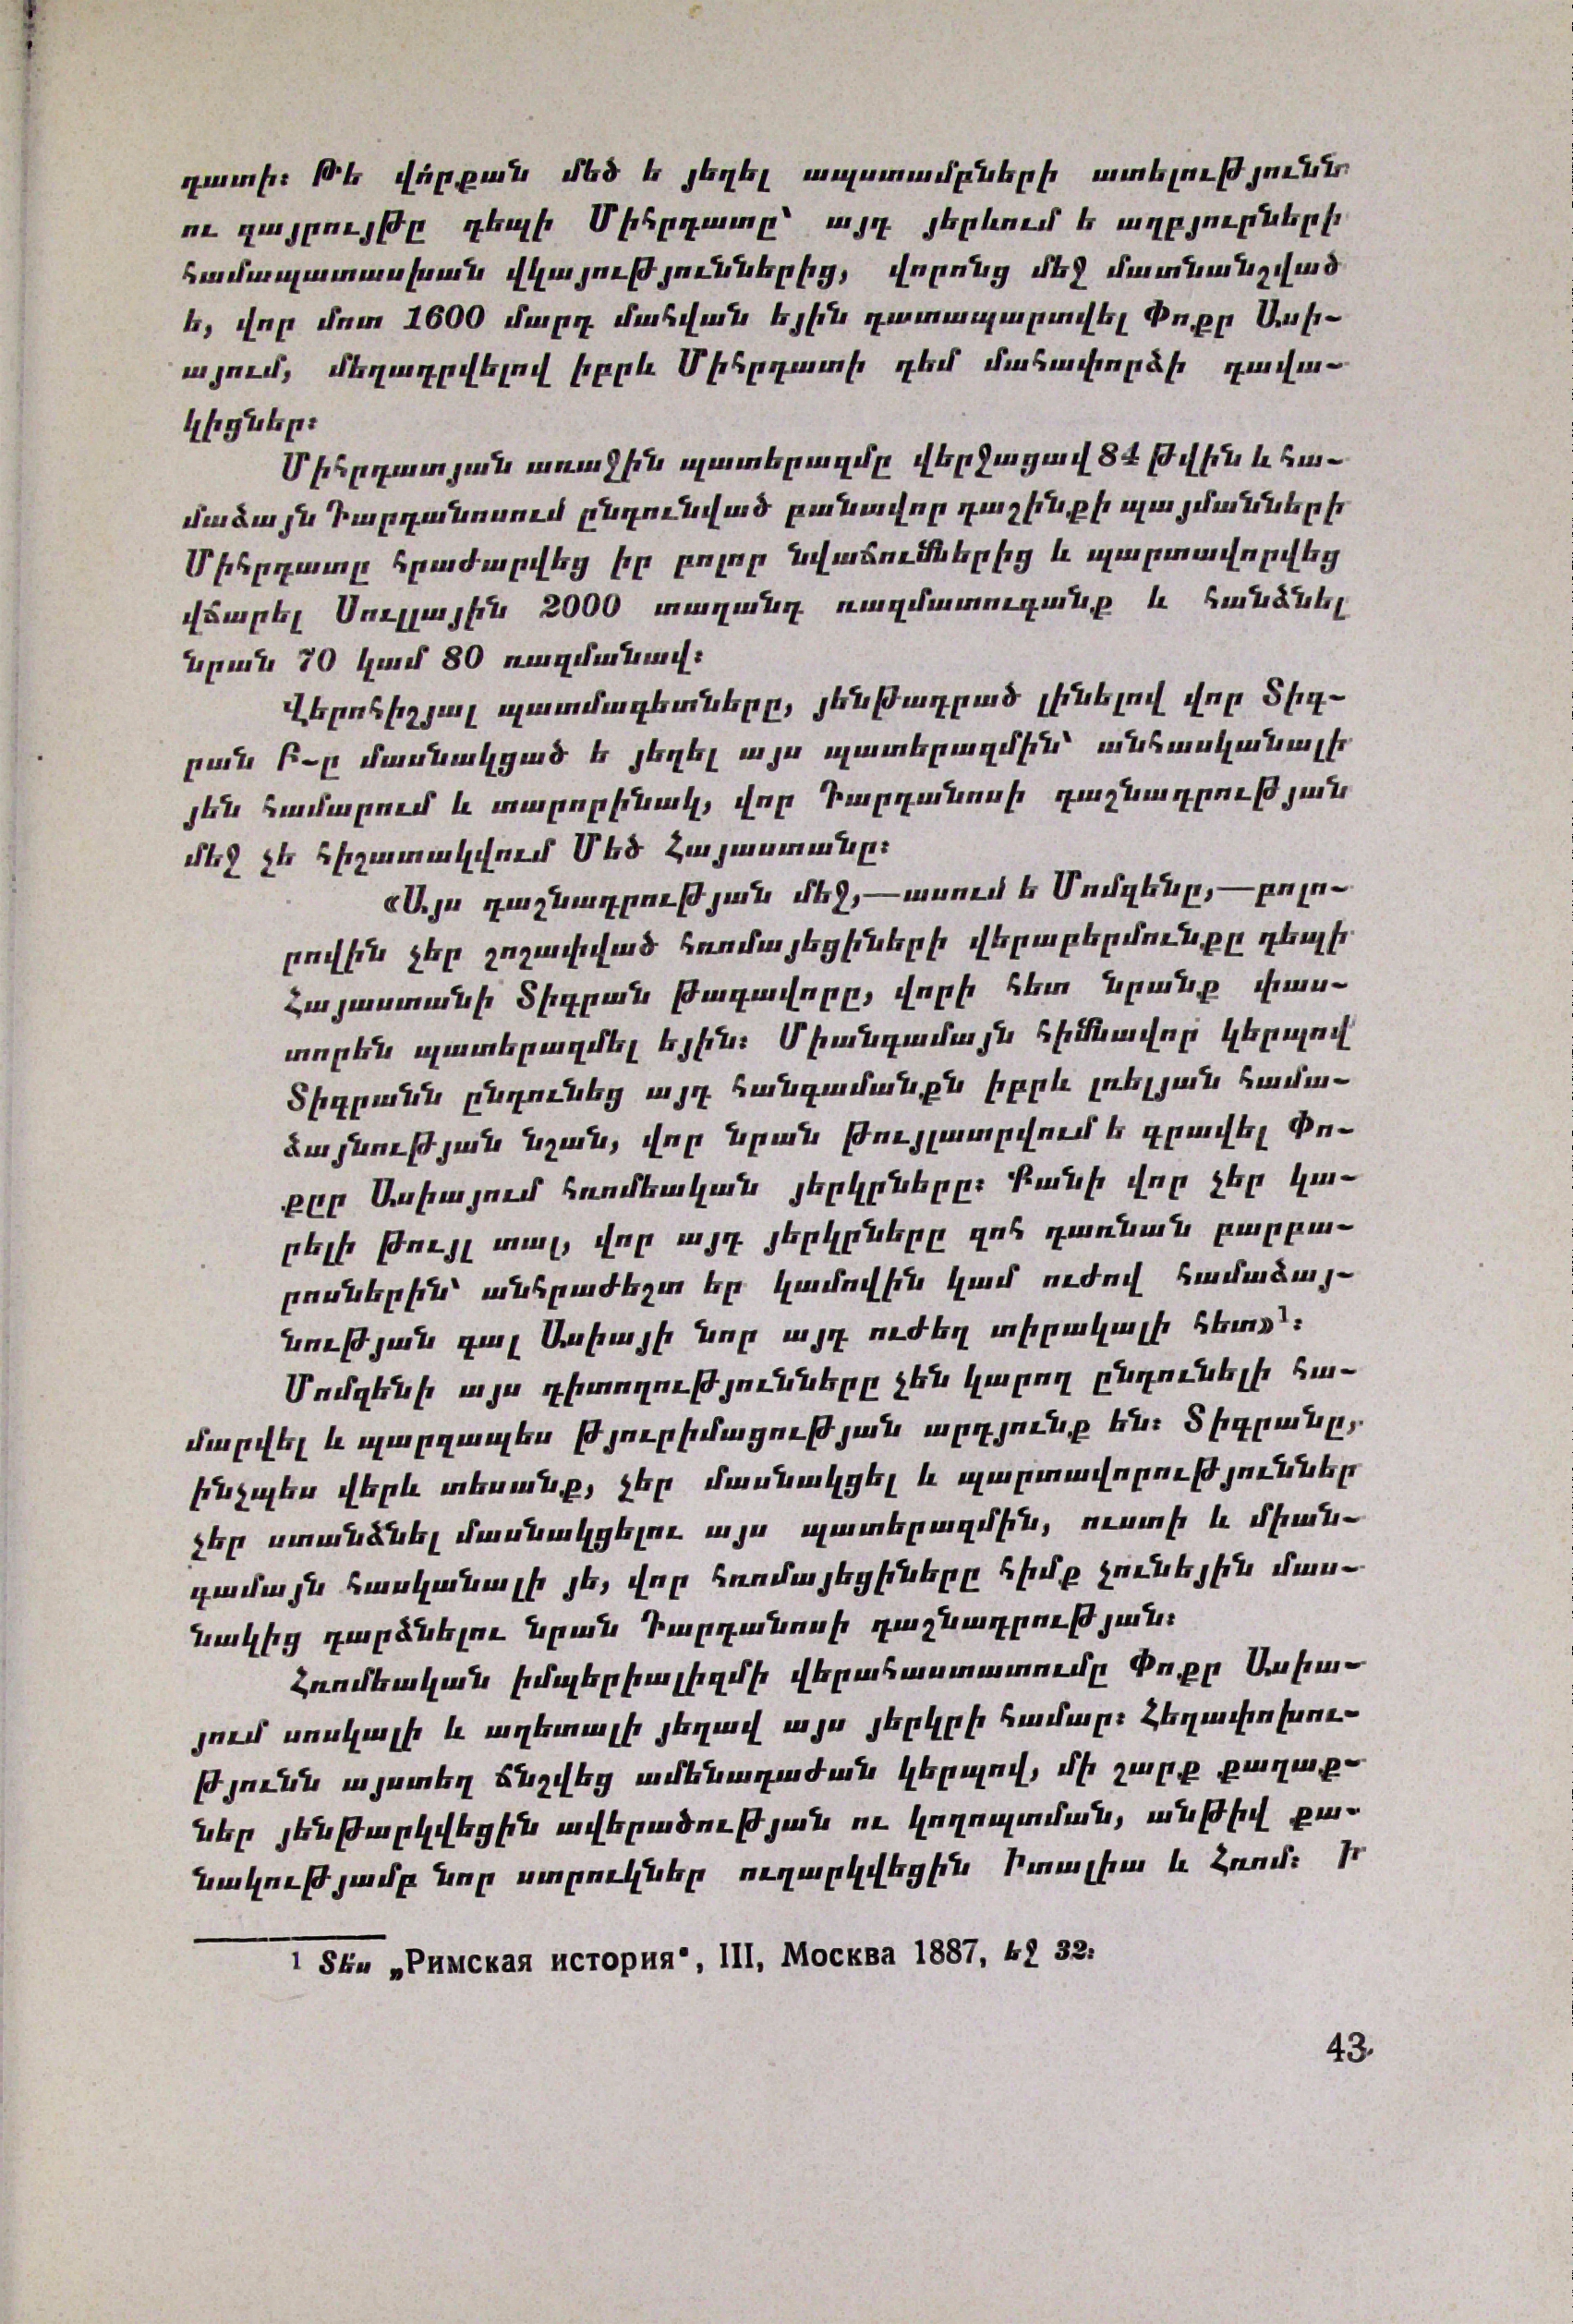 դատի։ Թե վո՛րքան մեծ ե յեղել ապստամբների ատելությունն
ու զայրույթը դեպի Միհրդատը՝ այդ յերևում ե աղբյուրների
համապատասխան վկայություններից, վորոնց մեջ մատնանշված
ե, վոր մոտ 1600 մարդ մահվան եյին դատապարտվել Փոքր Ասի-
այում, մեղադրվելով իբրև Միհրդատի դեմ մահափորձի դավա-
կիցներ։
Միհրդատյան առաջին պատերազմը վերջացավ 84 թվին և հա-
մաձայն Դարդանոսում ընդունված բանավոր դաշինքի պայմանների
Միհրդատը հրաժարվեց իր բոլոր նվաճումներից և պարտավորվեց
վճարել Սուլլային 2000 տաղանդ ռազմատուգանք և հանձնել
նրան 70 կամ 80 ռազմանավ։
Վերոհիշյալ պատմագետները, յենթադրած լինելով վոր Տիգ-
րան Բ-ը մասնակցած ե յեղել այս պատերազմին՝ անհասկանալի
յեն համարում և տարորինակ, վոր Դարդանոսի դաշնադրության
մեջ չե հիշատակվում Մեծ Հայաստանը։
«Այս դաշնադրության մեջ,—ասում ե Մոմզենը,—բոլո-
րովին չեր շոշափված հռոմայեցիների վերաբերմունքը դեպի
Հայաստանի Տիգրան թագավորը, վորի հետ նրանք փաս-
տորեն պատերազմել եյին։ Միանգամայն հիմնավոր կերպով
Տիգրանն ընդունեց այդ հանգամանքն իբրև լռելյան համա-
ձայնության նշան, վոր նրան թույլատրվում ե գրավել Փո-
քըր Ասիայում հռոմեական յերկրները։ Քանի վոր չեր կա-
րելի թույլ տալ, վոր այդ յերկրները զոհ դառնան բարբա-
րոսներին՝ անհրաժեշտ եր կամովին կամ ուժով համաձայ-
նության գալ Ասիայի նոր այդ ուժեղ տիրակալի հետ»¹։
Մոմզենի այս դիտողությունները չեն կարող ընդունելի հա-
մարվել և պարզապես թյուրիմացության արդյունք են։ Տիգրանը,
ինչպես վերև տեսանք, չեր մասնակցել և պարտավորություններ
չեր ստանձնել մասնակցելու այս պատերազմին, ուստի և միան-
գամայն հասկանալի յե, վոր հռոմայեցիները հիմք չունեյին մաս-
նակից դարձնելու նրան Դարդանոսի դաշնադրության։
Հռոմեական իմպերիալիզմի վերահաստատումը Փոքր Ասիա-
յում սոսկալի և աղետալի յեղավ այս յերկրի համար։ Հեղափոխու-
թյունն այստեղ ճնշվեց ամենադաժան կերպով, մի շարք քաղաք-
ներ յենթարկվեցին ավերածության ու կողոպտման, անթիվ քա-
նակությամբ նոր ստրուկներ ուղարկվեցին Իտալիա և Հռոմ։ Ի
1 Տես „Римская история“, III, Москва 1887, եջ 32։
43